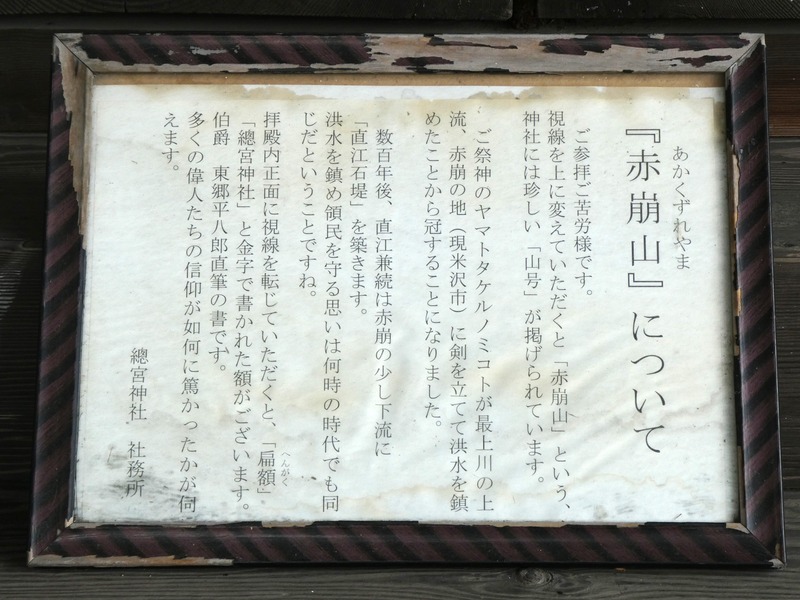 あかくずれやま
『赤崩山』について
ご参拝ご苦労様です。
視線を上に変えていただくと「赤崩山」という、
神社には珍しい「山号」が掲げられています。
ご祭神のヤマトタケルノミコトが最上川の上
流、赤崩の地（現米沢市）に剣を立てて洪水を鎮
めたことから冠することになりました。
数百年後、直江兼続は赤崩の少し下流に
「直江石堤」を築きます。
洪水を鎮め領民を守る思いは何時の時代でも同
じだということですね。
拝殿内正面に視線を転じていただくと、「扁額」
へんがく
「總宮神社」と金字で書かれた額がございます。
伯爵　東郷平八郎直筆の書です。
多くの偉人たちの信仰が如何に篤かったかが伺
えます。
總宮神社　社務所